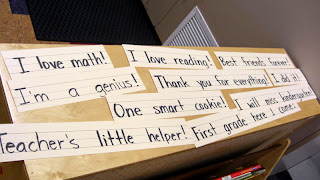 I love math!
I love reading!
Best friends forever!
I'm a genius!
Thank you for everything!
I did it!
One smart cookie!
I will miss kindergarten!
Teacher's little helper!
First grade here I come!